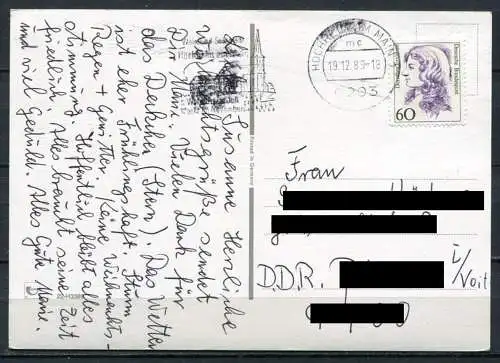 Liebe Susanne Herzliche
Weihnachtsgrüße sendet
Dir Meine. Vielen Dank für
das Deckchen (Stern). Das Wetter
ist eher Frühlingshaft Sturm
Regen + Gewitter, keine Weihnachts-
stimmung. Hoffentlich bleibt alles
friedlich. Alles braucht seine Zeit
und viel Geduld. Alles Gute
HOCHHEIM AM MAIN
mc
19.12.89-18
6203
Deutsche Bundespost
60
Frau
DDR.
i/Voit